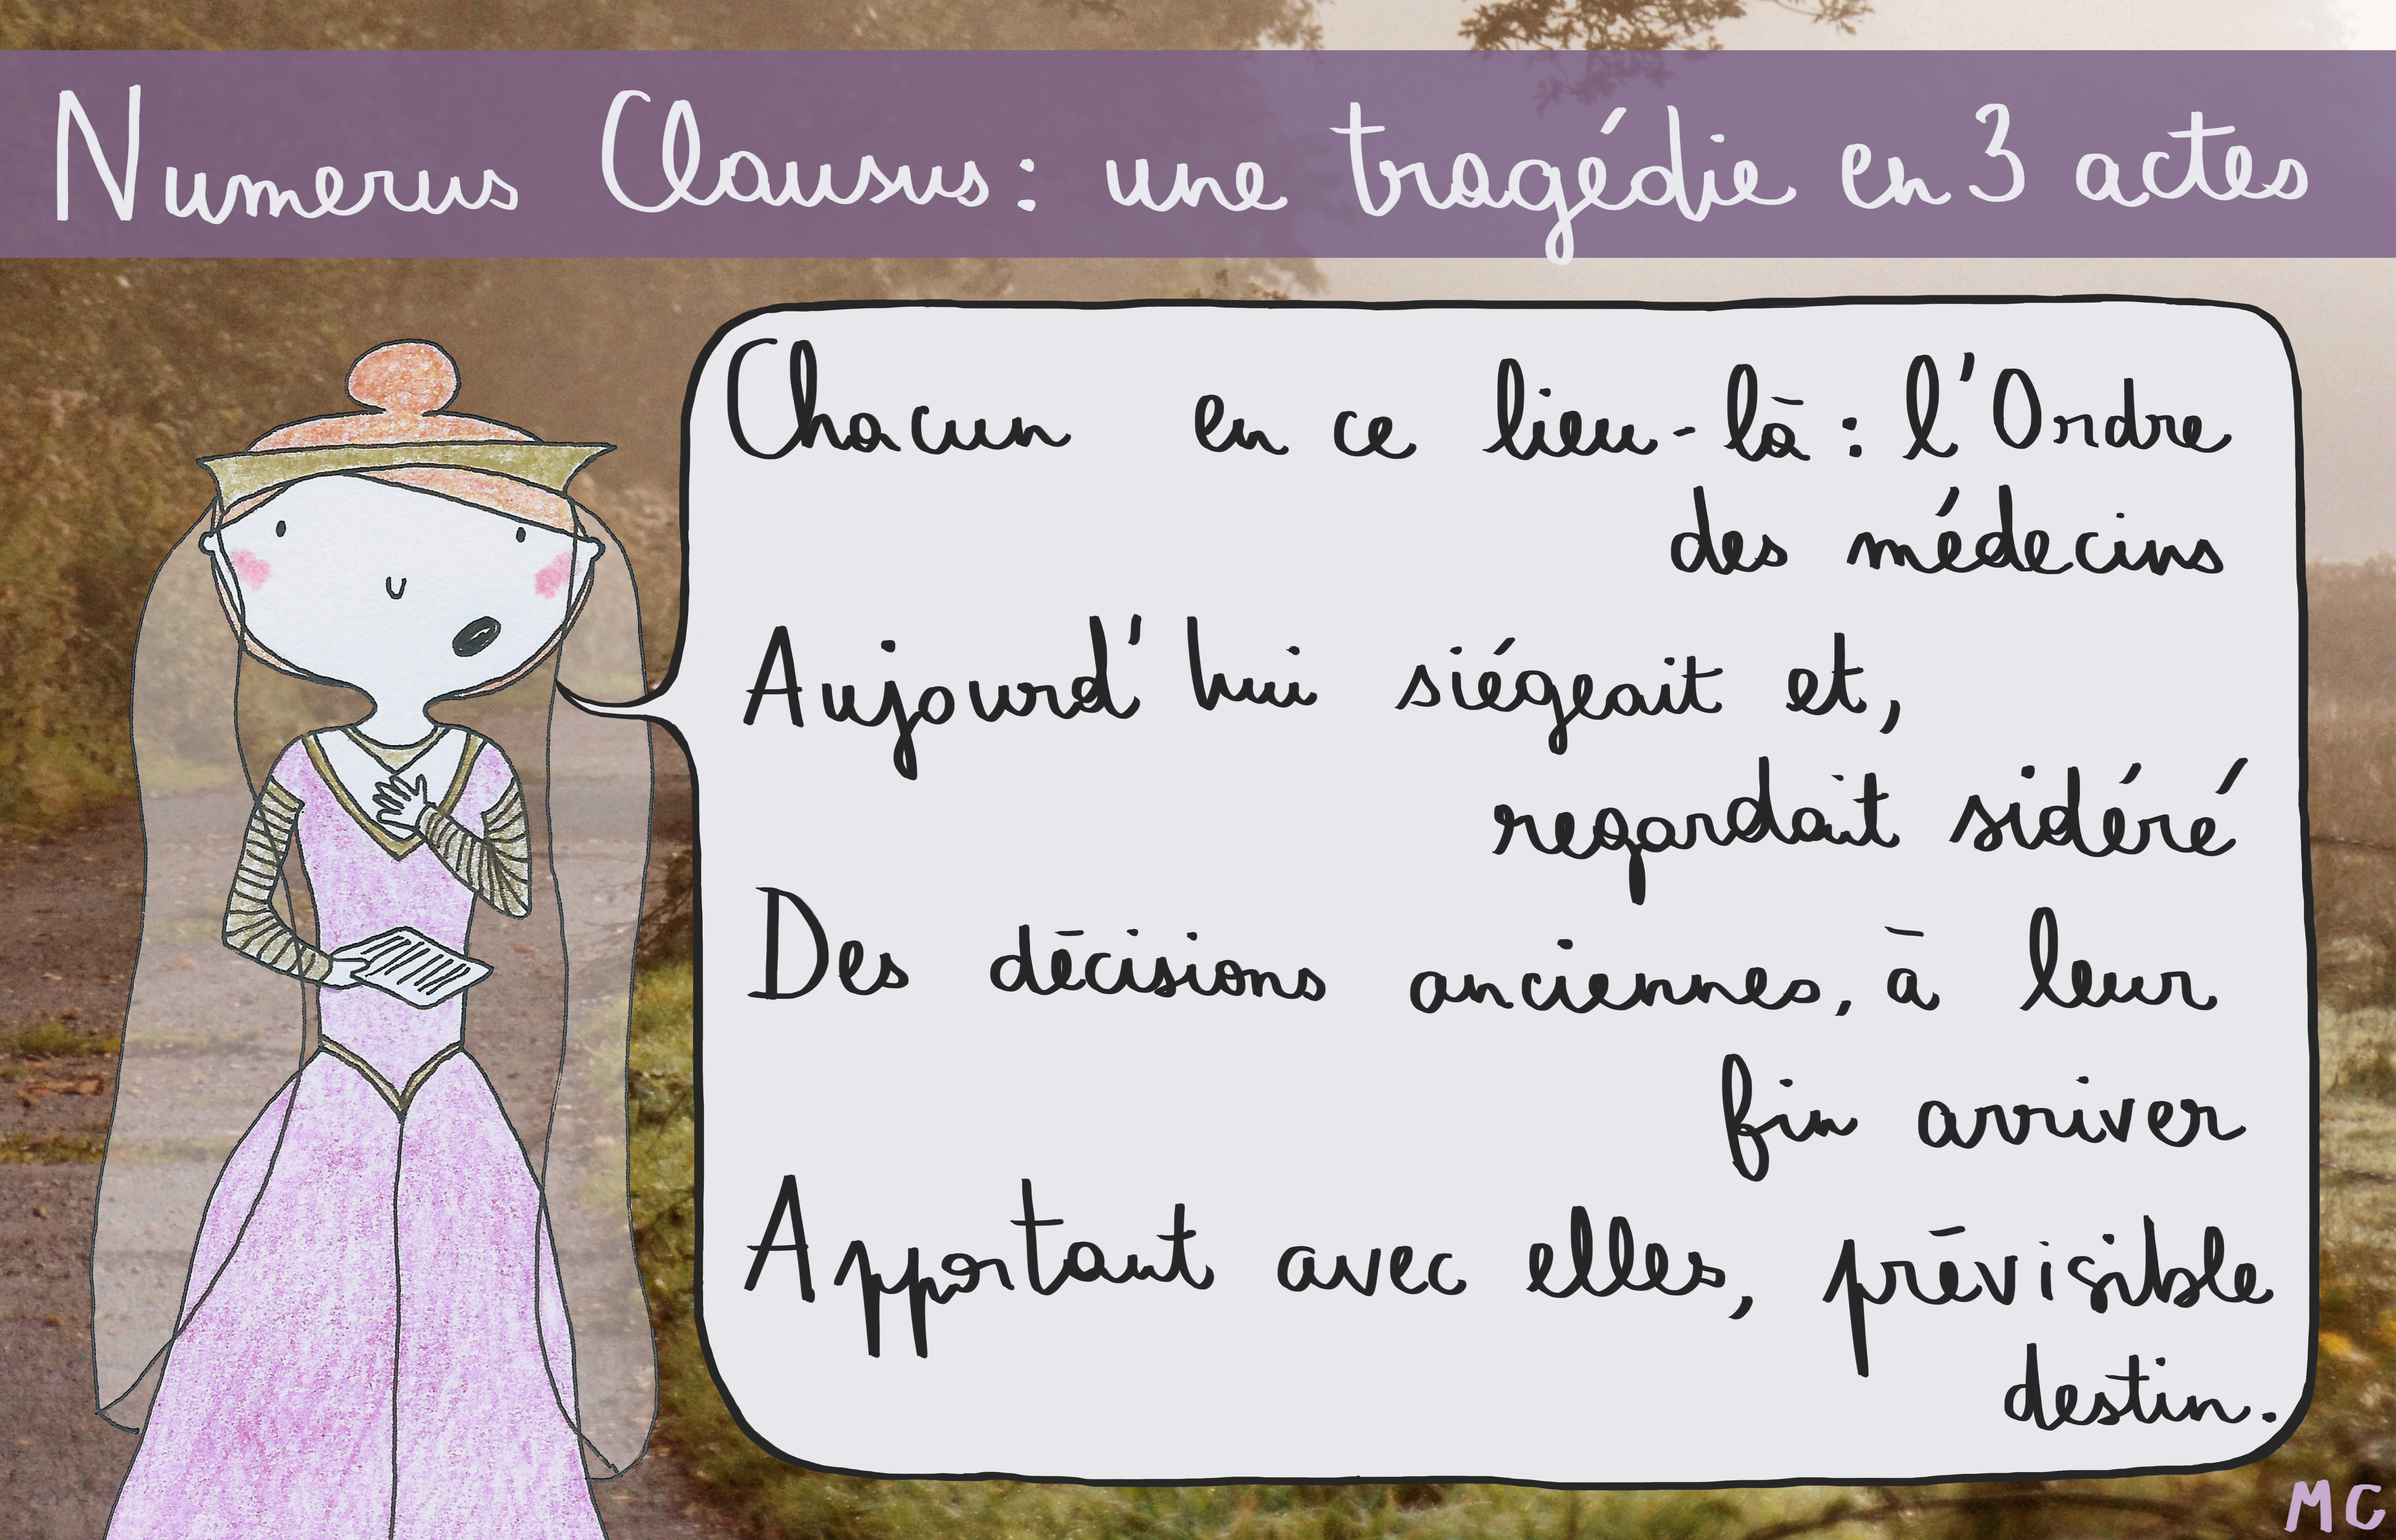 Numerus Clausus : une tragédie en 3 actes
Chacun en ce lieu-là : l'Ordre
des médecins
Aujourd'hui siégeait et,
regardait sidéré
Des décisions anciennes, à leur
fin arriver
Apportant avec elles, prévisible
destin.
MC